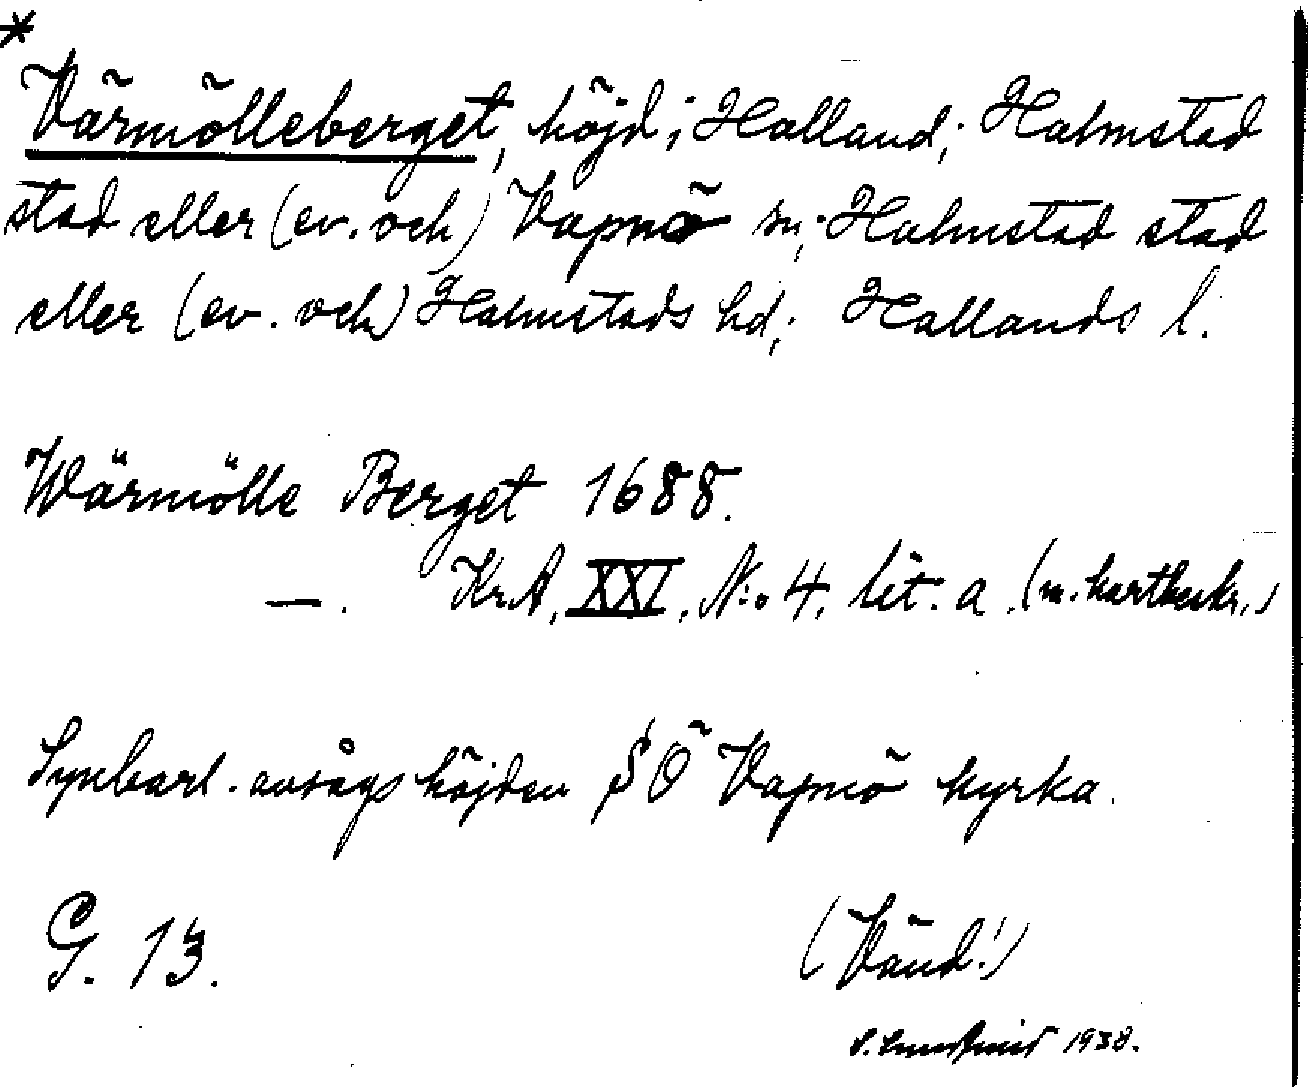 *
Värmölleberget, höjd; Halland; Halmstad
stad eller (ev. och) Vapnö sn; Halmstad stad
eller (ev. och) Halmstads hd; Hallands l.
Wärmölle Berget 1688.
—. KrA, XXI, N:o 4, lit. a. (m. kartbeskr.)
Synbarl. avsågs höjden SÖ Vapnö kyrka.
G. 13.
(Vänd!)
1938.